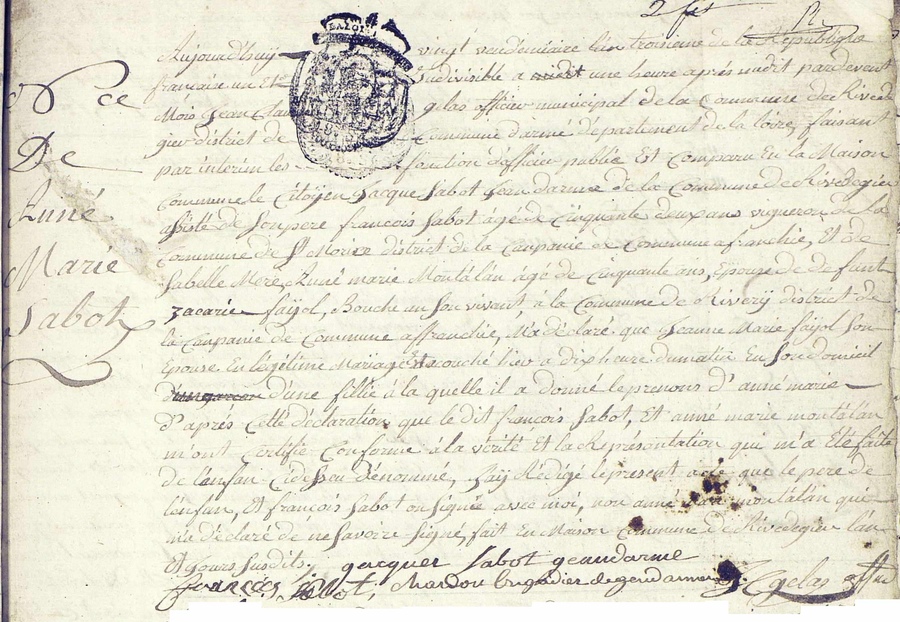 2 fs
N.ce
De
Anné
Marie
Sabot
Aujourd'huy vingt vendémiaire l'an troisieme de la République
francaise un et indivisible a midit une heure après midit pardevent
Mois Jean gelas officier municipal de la Commune de Rivede
gier district de Commune d'armé département de la loire, faisant
par intérim les fonction d'officier publié Et Comparu En la Maison
Commune le Citoyen Jacque Sabot Jeandarme de la Commune de Rivedegier
assisté de Son pere francois Sabot âgé de Cinquante deux ans vigneron de la
Commune de St Morice district de la Campanie de Commune afranchie, Et de
Sa belle Mere Anné marie Montalan âgé de Cinquante ans, épouse de defunt
zacarie fayol, Bouché un Son vivant, à la Commune de Riverij district de
la Campanie de Commune affranchie, Ma déclaré que Jeanne Marie fayol Son
Epouse En légétime Mariage Est acouché hier a dix heure du matin En Son domicil
d'un garcon d'une fillie à la quelle il a donné le prenons d'anné marie
d'après Cette déclaration que le dit francois Sabot, Et anné marie montalan
m'ont Certifié Conforme à la vérité Et la Représentation qui m'a Eté faite
de l'anfan Cidessu dénommé, J'aij Rédigé le present acte que le pere de
l'enfan, Et francois Sabot on signée avec moi, non anné marie montalan qui
m'a déclaré de ne Savoire Signé, fait En Maison Commune de Rivedegier l'an
Et jours Susdits.
jacques Sabot geandarme
francois Sabot, brigadier de gendarmerie
Gelas off